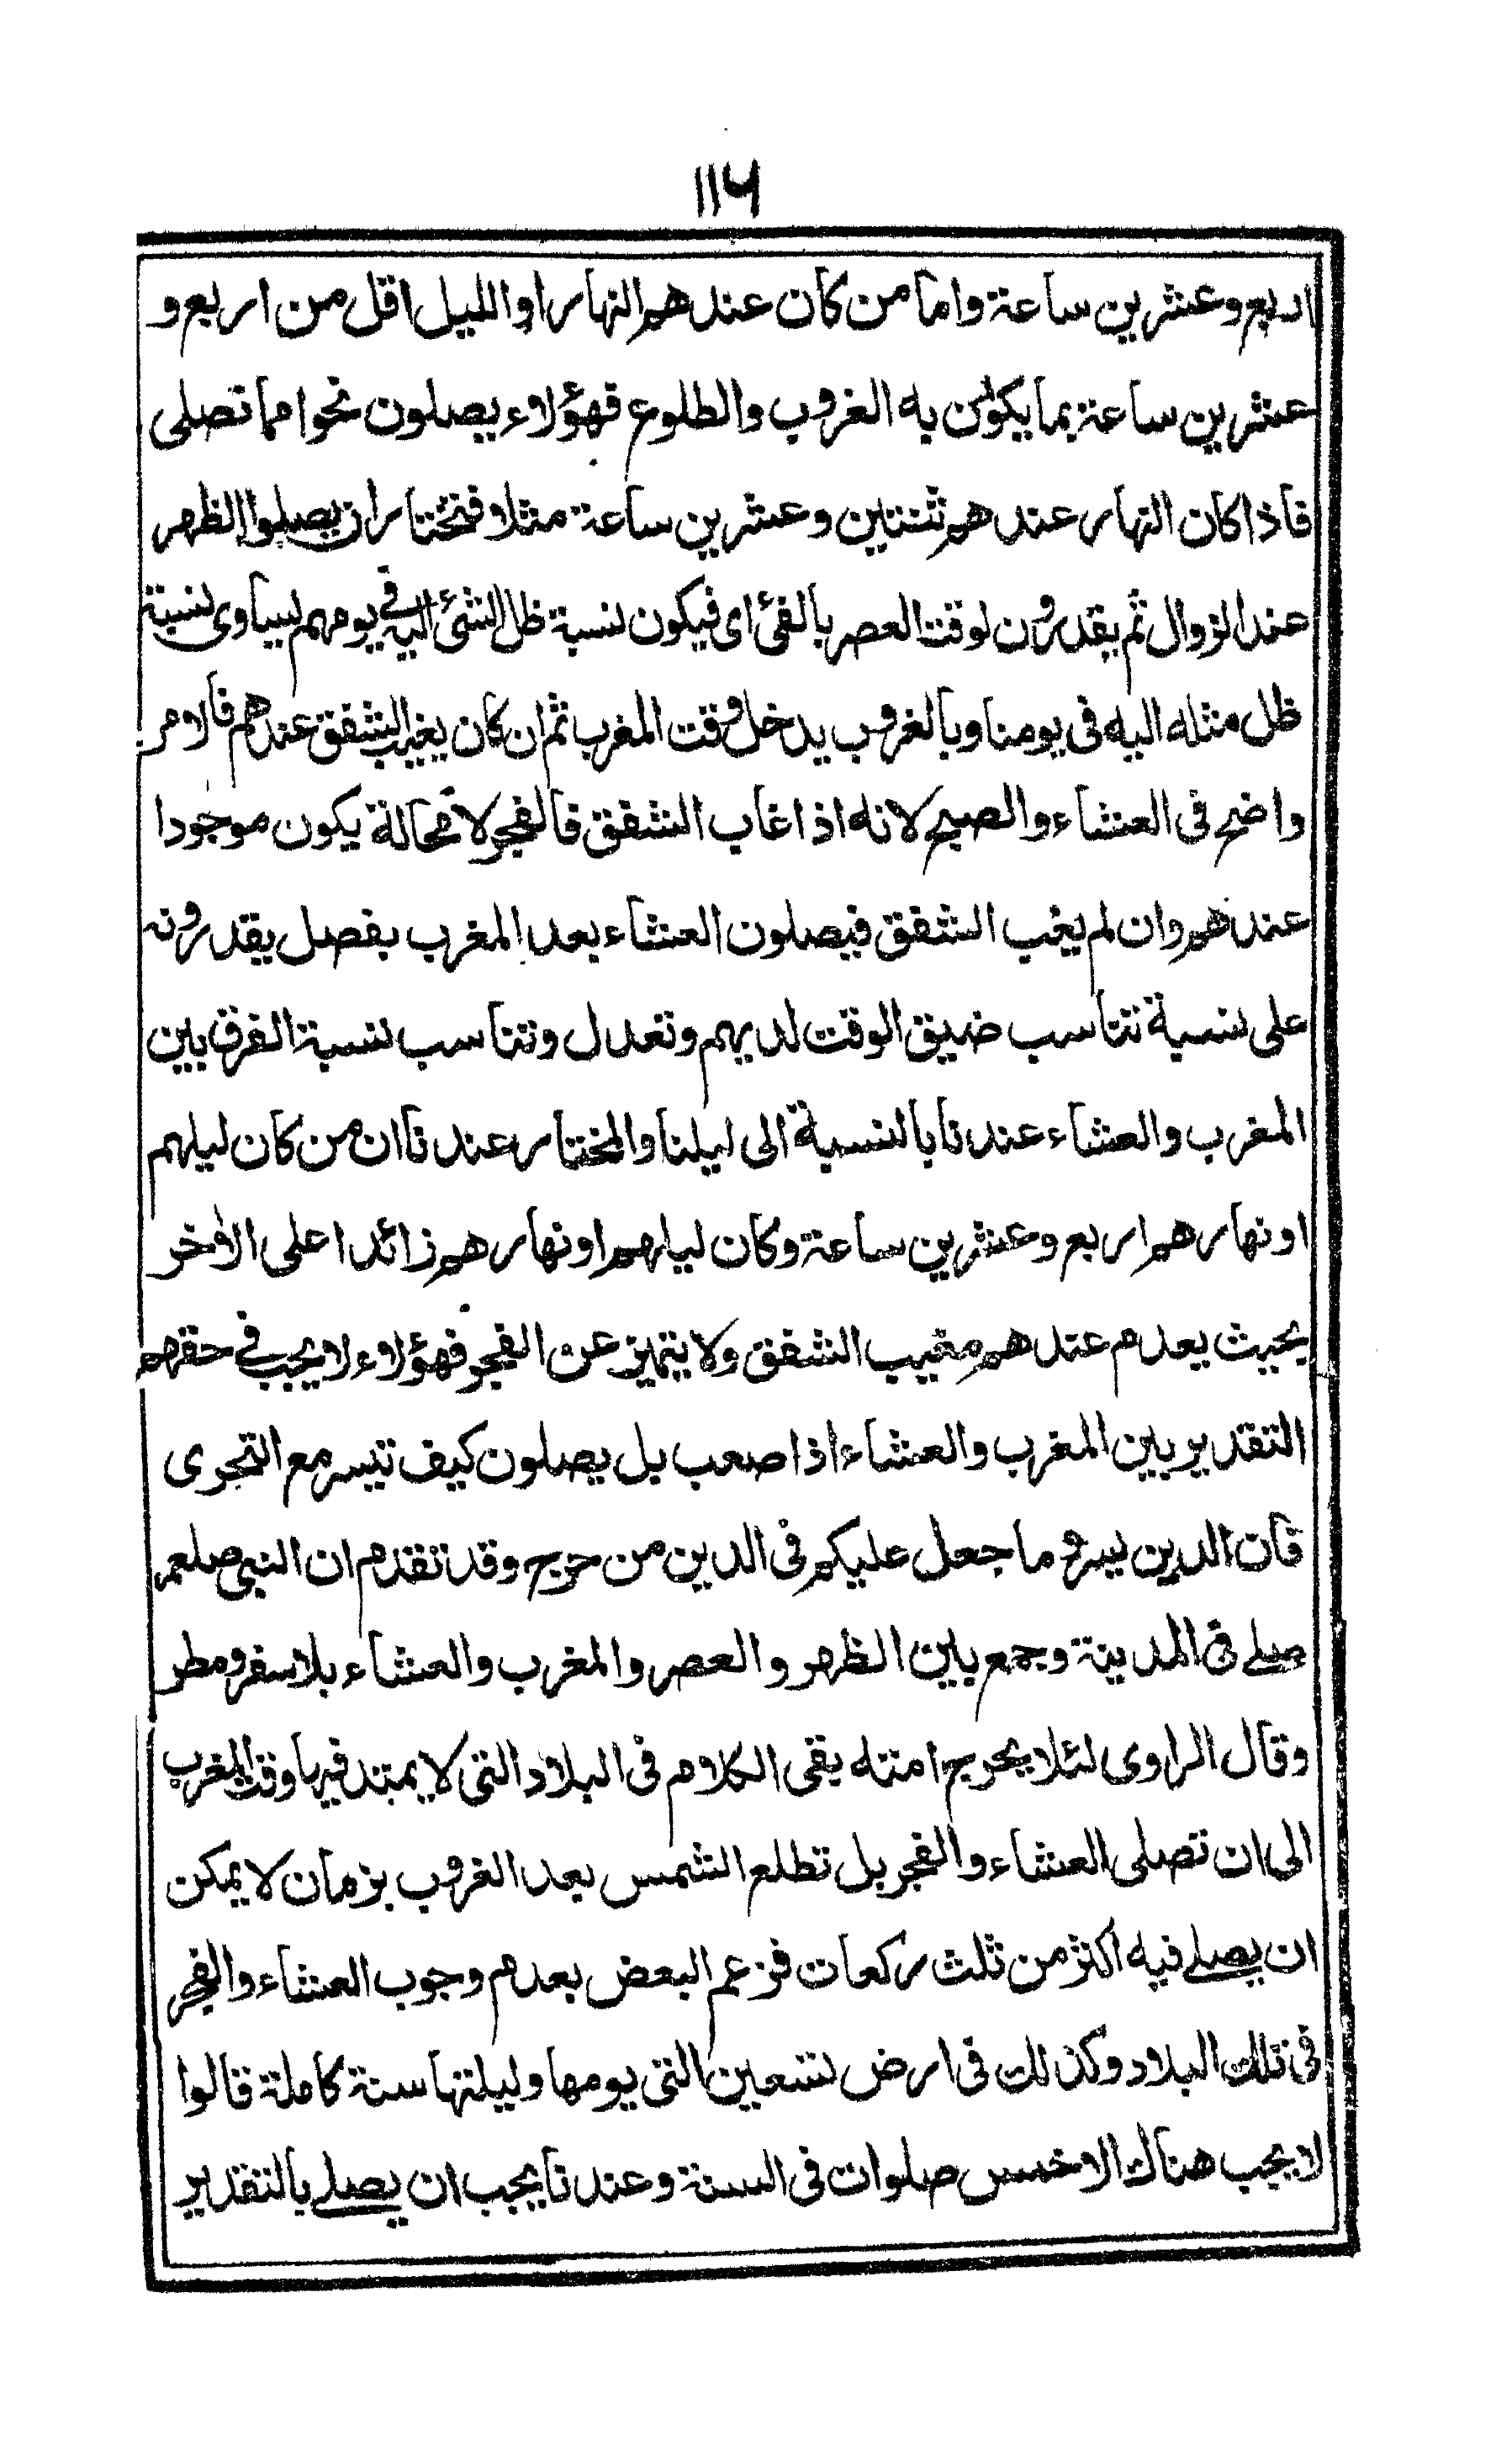 ١١٦
اربع وعشرين ساعة واما من كان عندهم النهار او الليل اقل من اربع و
عشرين ساعة بما يكون به الغروب والطلوع فهؤلاء يصلون نحوا مما نصلى
فاذا كان النهار عندهم ثنتين وعشرين ساعة مثلا فنختار ان يصلوا الظهر
عند الزوال ثم يقدرون لوقت العصر بالفئ اى فيكون نسبة ظل الشئ اليه فى يومهم ليساوى نسبة
ظل مثله اليه فى يومنا وبالغروب يدخل وقت المغرب ثم ان كان يغيب الشفق عندهم فالامر
واضح فى العشاء والصبح لانه اذا غاب الشفق فالفجر لا محالة يكون موجودا
عندهم وان لم يغب الشفق فيصلون العشاء بعد المغرب بفصل يقدرونه
على نسبة تناسب ضيق الوقت لديهم وتعدل وتناسب نسبة الفرق بين
المغرب والعشاء عندنا بالنسبة الى ليلنا والمختار عندنا ان من كان ليلهم
او نهارهم اربع وعشرين ساعة وكان ليلهم او نهارهم زائدا على الاخر
بحيث يعدم عندهم مغيب الشفق ولا يتميز عن الفجر فهؤلاء لا يجب فى حقهم
التقدير بين المغرب والعشاء اذا صعب بل يصلون كيف تيسر مع التحرى
فان الدين يسر و ما جعل عليكم فى الدين من حرج وقد تقدم ان النبى صلعم
صلے فى المدينة وجمع بين الظهر والعصر والمغرب والعشاء بلا سفر ومطر
وقال الراوى لئلا يحرج امته بقى الكلام فى البلاد التى لا يمتد فيها وقت المغرب
الى ان تصلى العشاء والفجر بل تطلع الشمس بعد الغروب بزمان لا يمكن
ان يصلے فيه اكثر من ثلث ركعات فزعم البعض بعدم وجوب العشاء والفجر
فى تلك البلاد وكذلك فى ارض تسعين التى يومها وليلتها سنة كاملة قالوا
لا يجب هناك الا خمس صلوات فى السنة وعندنا يجب ان يصلے بالتقدير